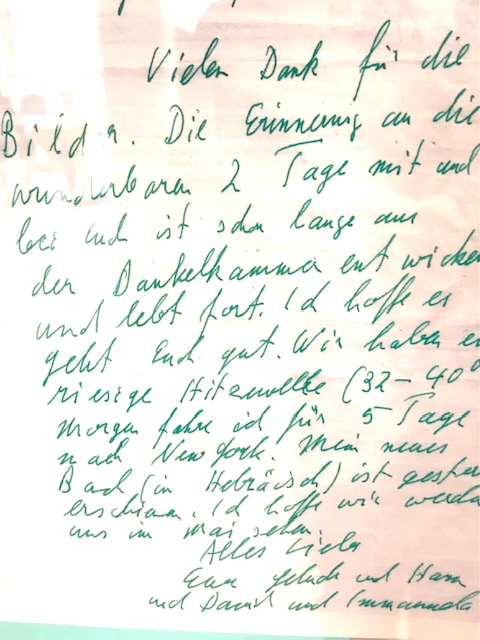 Vielen Dank für die
Bilder. Die Erinnerung an die
wunderbaren 2 Tage mit und
bei Euch ist schon lange aus
der Dunkelkammer entwickel
und lebt fort. Ich hoffe es
geht Euch gut. Wir haben ei
riesige Hitzewelle (32-40°
Morgen fahre ich für 5 Tage
nach New York. Mein neues
Buch (in Hebräisch) ist gester
erschienen. Ich hoffe wir werden
uns im Mai sehen.
Alles Liebe
Eure und
und David und Immanuela